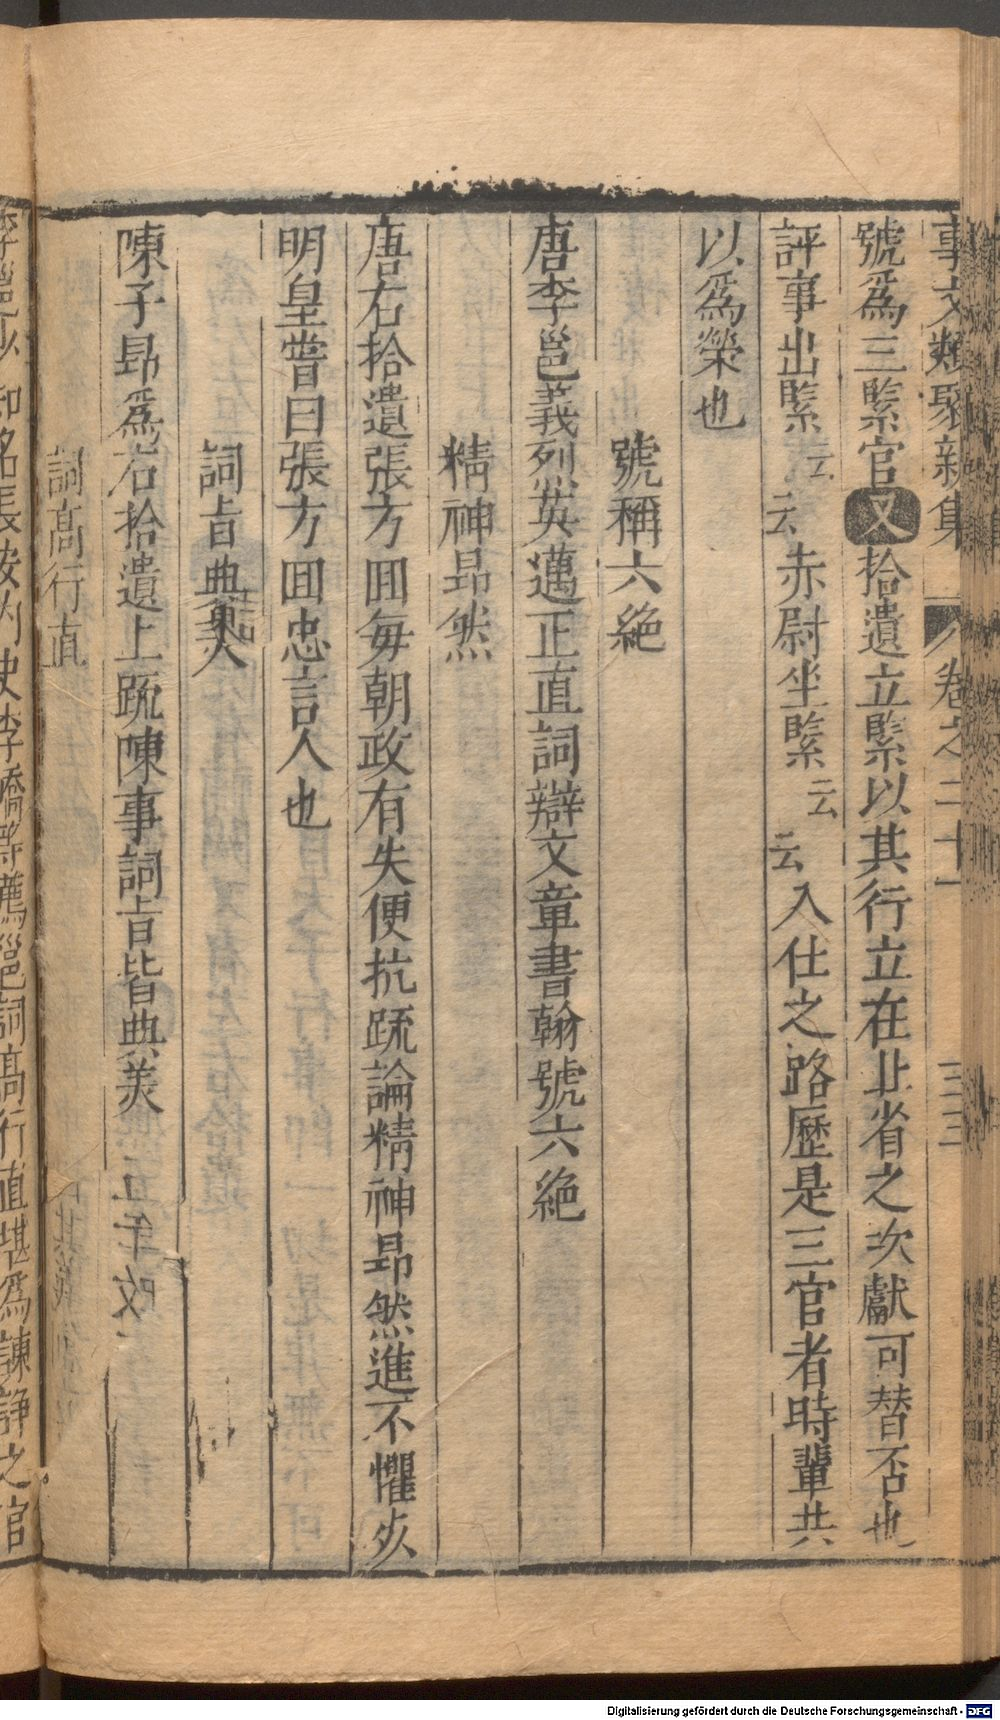 事文類聚新集 卷之二十一 三三
號爲三緊官又拾遺立緊以其行立在北省之次獻可替否也
評事出緊云云赤尉坐緊云云入仕之路歷是三官者時輩共
以爲榮也
號稱六絕
唐李邕義烈英邁正直詞辯文章書翰號六絕
精神昻然
唐右拾遺張方囬每朝政有失便抗疏論精神昻然進不懼死
明皇嘗曰張方囬忠言人也
詞旨典美
陳子昻爲右拾遺上疏陳事詞旨皆典美
詞高行直
李邕以知名長安内史李嶠等薦邕詞高行直堪爲諫諍之官
Digitalisierung gefördert durch die Deutsche Forschungsgemeinschaft - DFG